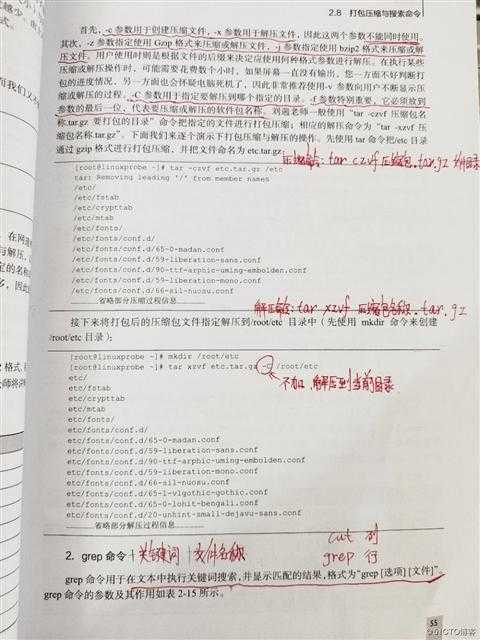 2.8 打包压缩与搜索命令
首先，-c 参数用于创建压缩文件，-x 参数用于解压文件，因此这两个参数不能同时使用。
其次，-z 参数指定使用 Gzip 格式来压缩或解压文件，-j 参数指定使用 bzip2 格式来压缩或解
压文件。用户使用时则是根据文件的后缀来决定应使用何种格式参数进行解压。在执行某些
压缩或解压操作时，可能需要花费数个小时，如果屏幕一直没有输出，您一方面不好判断打
包的进度情况，另一方面也会怀疑电脑死机了，因此非常推荐使用-v 参数向用户不断显示压
缩或解压的过程。-C 参数用于指定要解压到哪个指定的目录。-f 参数特别重要，它必须放到
参数的最后一位，代表要压缩或解压的软件包名称。刘遄老师一般使用“tar -czvf 压缩包名
称.tar.gz 要打包的目录”命令把指定的文件进行打包压缩；相应的解压命令为“tar -xzvf 压
缩包名称.tar.gz”。下面我们来逐个演示下打包压缩与解压的操作。先使用 tar 命令把/etc 目录
通过 gzip 格式进行打包压缩，并把文件命名为 etc.tar.gz：
压缩命令：tar czvf 压缩包.tar.gz 目录
[root@linuxprobe ~]# tar -czvf etc.tar.gz /etc
tar: Removing leading '/' from member names
/etc/
/etc/fstab
/etc/crypttab
/etc/mtab
/etc/fonts/
/etc/fonts/conf.d/
/etc/fonts/conf.d/65-0-madan.conf
/etc/fonts/conf.d/59-liberation-sans.conf
/etc/fonts/conf.d/90-ttf-arphic-uming-embolden.conf
/etc/fonts/conf.d/59-liberation-mono.conf
/etc/fonts/conf.d/66-sil-nuosu.conf
………………省略部分压缩过程信息………………
解压命令：tar xzvf 压缩包名称.tar.gz
接下来将打包后的压缩包文件指定解压到/root/etc 目录中（先使用 mkdir 命令来创建
/root/etc 目录）：
[root@linuxprobe ~]# mkdir /root/etc
[root@linuxprobe ~]# tar xzvf etc.tar.gz -C /root/etc
不加，解压到当前目录
etc/
etc/fstab
etc/crypttab
etc/mtab
etc/fonts/
etc/fonts/conf.d/
etc/fonts/conf.d/65-0-madan.conf
etc/fonts/conf.d/59-liberation-sans.conf
etc/fonts/conf.d/90-ttf-arphic-uming-embolden.conf
etc/fonts/conf.d/59-liberation-mono.conf
etc/fonts/conf.d/66-sil-nuosu.conf
etc/fonts/conf.d/65-1-vlgothic-gothic.conf
etc/fonts/conf.d/65-0-lohit-bengali.conf
etc/fonts/conf.d/20-unhint-small-dejavu-sans.conf
………………省略部分解压过程信息………………
cut 列
2. grep 命令 + 关键词 + 文件名称 grep 行
grep 命令用于在文本中执行关键词搜索，并显示匹配的结果，格式为“grep [选项] [文件]”。
grep 命令的参数及其作用如表 2-15 所示。
55
@51CTO博客